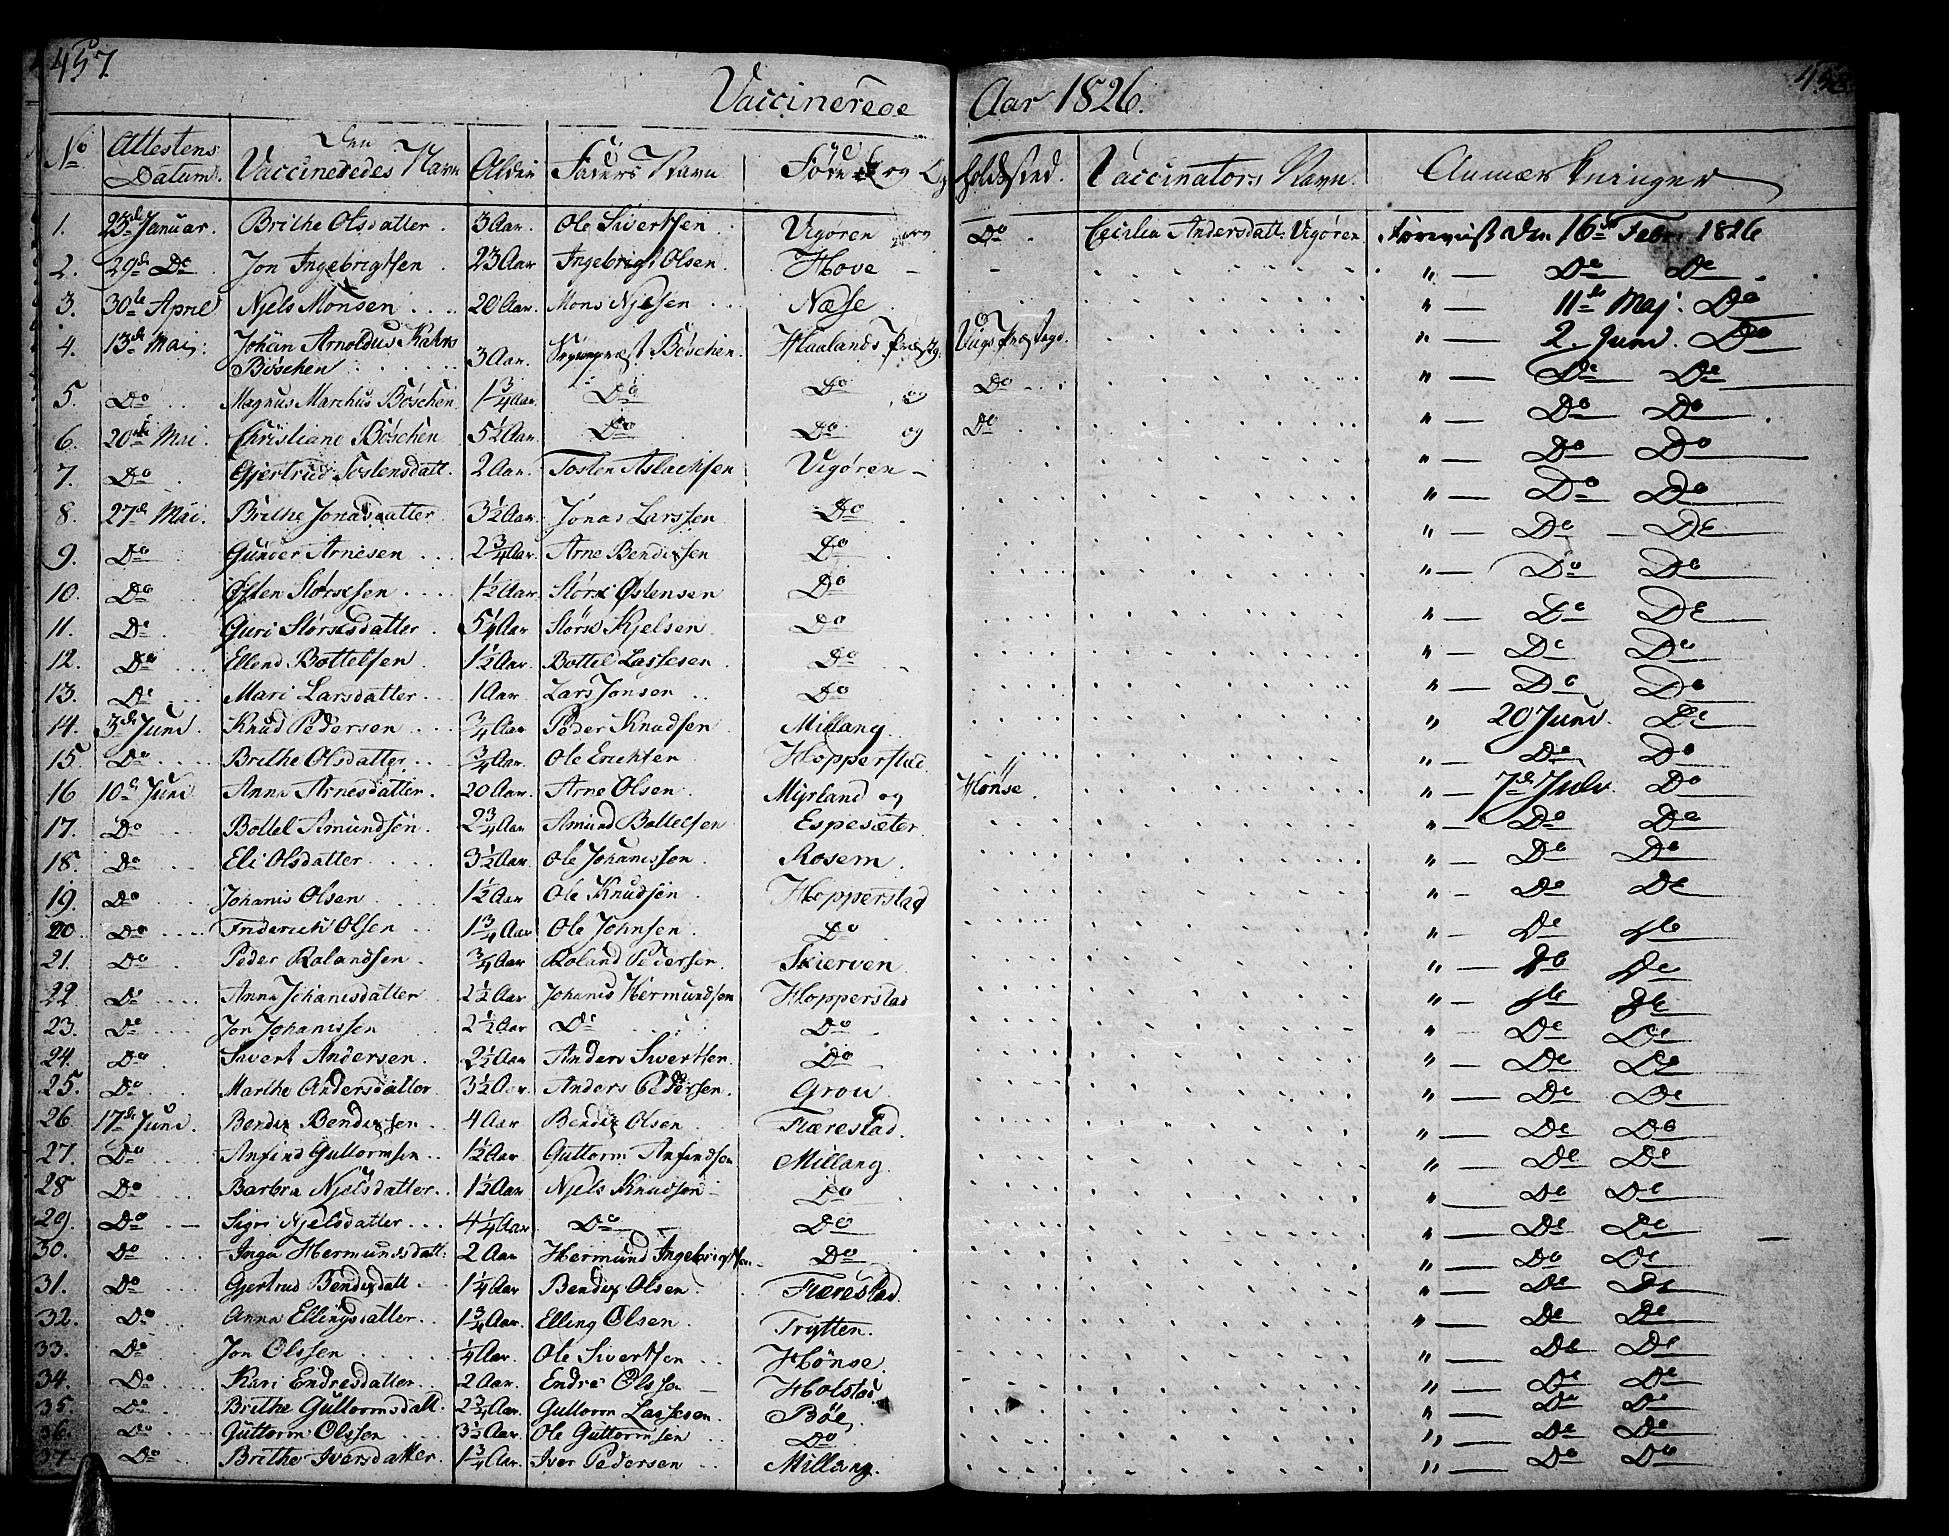 457
458
Vaccinerede Aar 1826.
No Attestens Datum. Den Vaccineredes Navn Alder Faders Navn Føde og Opholdssted. Vaccinators Navn. Anmærkninger
1. 23de Januar. Brithe Olsdatter. 3 Aar. Ole Sivertsen. Vigøren og Do Cecilia Andersdatt. Vigøren den 16de Febr. 1826
2. 29de Do Jon Ingebrigtsen 23 Aar Ingebrigt Olsen. Hove - " — Do Do
3. 30te April Njels Monsen 20 Aar Mons Njelsen Næse " — 11te Maj. Do
4. 13de Mai. Johan Arnoldus Bøschen 3 Aar. Bøschen. Haalands Præstg. Præstegd. " — 2. Juni. Do
5. Do Magnus Marchus Bøschen 1 3/4 Aar. Do Do og Do " — Do Do
6. 20de Mai. Christiane Bøschen 5 1/2 Aar. Do Do og Do " — Do Do
7. Do Gjertrud Tostensdatt. 2 Aar. Tosten Aslachsen Vigøren - " — Do Do
8. 27de Mai. Brithe Jonasdatter 3 1/2 Aar. Jonas Larssen Do " — Do Do
9. Do Gunder Arnesen 2 3/4 Aar. Arne Bendixsen Do " — Do Do
10. Do Østen Størksen 1 1/2 Aar. Størk Østensen Do " — Do Do
11. Do Guri Størksdatter 5 1/4 Aar Størk Kjelsen Do " — Do Do
12. Do Ellend Bottelsen 1 1/2 Aar. Bottel Lassesen Do " — Do Do
13. Do Mari Larsdatter 1 Aar. Lars Jonsen Do " — Do Do
14. 3de Juni Knud Pedersen 3/4 Aar Peder Knudsen Millang " — 20 Juni. Do
15. Do Brithe Olsdatter 3/4 Aar. Ole Erichsen Hopperstad. " — Do Do
16 10de Juni Anna Arnesdatter. 20 Aar. Arne Olsen Myrland og Hønse. " — 7de Juli. Do
17. Do Bottel Amundsøn. 2 3/4 Aar Amund Bottelsen Espesæter " — Do Do
18. Do Eli Olsdatter 3 1/2 Aar. Ole Johannssøn Rosem. " — Do Do
19. Do Johanis Olsen 1 1/2 Aar Ole Knudsøn Hopperstad " — Do Do
20 Do Friderich Olsen 1 3/4 Aar Ole Johnsen Do " — Do Do
21. Do Peder Rolandsen 3/4 Aar Roland Pedersen. Skierven. " — Do Do
22 Do Anna Johanisdatter 2 1/2 Aar Johanis Hermundsen Hopperstad " — Do Do
23. Do Jon Johanissen 2 1/2 Aar Do Do " — Do Do
24. Do Sivert Andersen. 2 1/2 Aar Anders Sivertsen Do " — Do Do
25. Do Marthe Andersdatter 3 1/2 Aar Anders Pedersen. Grov " — Do Do
26 17de Juni. Bendix Bendixsen 4 Aar Bendix Olsen Færestad. " — Do Do
27. Do Anfind Guttormsen 1 1/2 Aar Guttorm Anfindsøn Millang. " — Do Do
28 Do Barbra Njelsdatter 1 1/2 Aar Njels Knudsøn Do " — Do Do
29. Do Sigri Njelsdatter 4 1/4 Aar Do Do " — Do Do
30. Do Inga Hermundsdatt. 2 Aar Hermund Ingebrigtsen Do " — Do Do
31. Do Gjertrud Bendixdatt. 1 1/4 Aar Bendix Olsen Færestad. " — Do Do
32. Do Anna Ellingsdatter 1 3/4 Aar. Elling Olsen Trytten. " — Do Do
33. Do Jon Olssen 1/4 Aar. Ole Sivertsen Hønse. " — Do Do
34. Do Kari Endresdatter 2 Aar. Endre Olssøn Holstad " — Do Do
35. Do Brithe Guttormsdatt. 2 3/4 Aar. Guttorm Lassesen. Bøe " — Do Do
36. Do Guttorm Olssen 3 1/2 Aar. Ole Guttormsen Do " — Do Do
37. Do Brithe Iversdatter. 1 3/4 Aar. Iver Pedersen Millang. " — Do Do